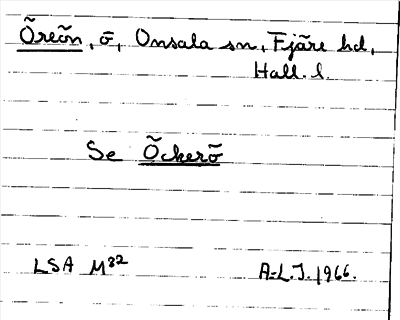 Õreõn, õ, Onsala sn, Fjäre hd,
Hall. l.
Se Õckerõ
LSA M82
A-L.J. 1966.